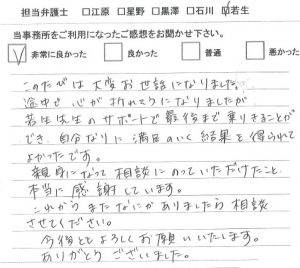 担当弁護士 □江原 □星野 □黒澤 □石川 ☑若生
当事務所をご利用になったご感想をお聞かせ下さい。
☑ 非常に良かった □ 良かった □ 普通 □ 悪かった
このたびは大変お世話になりました。
途中で心が折れそうになりましたが
若生先生のサポートで最後まで乗りきることが
でき、自分なりに満足のいく結果を得られて
よかったです。
親身になって相談にのっていただけたこと、
本当に感謝しています。
これからもまたなにかありましたら相談
させてください。
今後ともよろしくお願いいたします。
ありがとうございました。